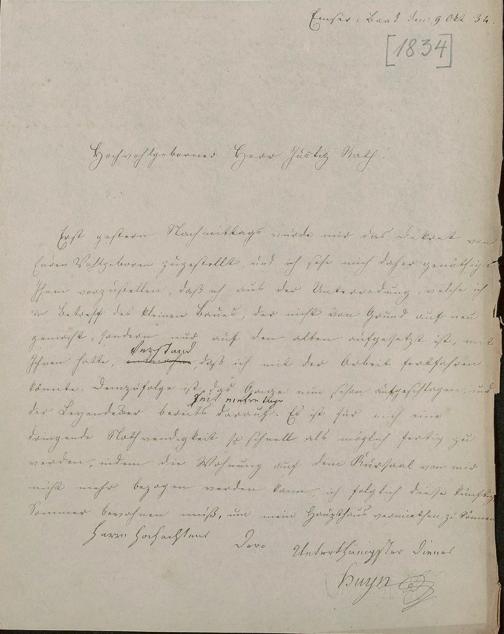 Emser, Baad den 9 Okt 34
[1834]
Hochwohlgeborner Herr Justitz Rath!
Erst gestern Nachmittags wurde mir das Dekret von
Euren Wohlgeboren zugestellt, und ich sehe mich daher genöthiget
Ihnen vorzustellen, daß ich aus der Unterredung, welche ich
in Betreff des kleinen Baues, der nicht von Grund auf neu
gemacht, sondern nur auf den alten aufgesetzt ist, mit
Ihnen hatte, verstand daß ich mit der Arbeit fortfahren
könnte. Demzufolge ist das Ganze nun schon aufgeschlagen, und
der Leyendecker bereits darauf. Es ist für mich eine
dringende Nothwendigkeit so schnell als möglich fertig zu
werden, indem die Wohnung auf dem Kursaal von mir
nicht mehr bezogen werden kann, ich folglich diese künftigen
Sommer bewohnen muß, um mein Haupthaus vermiethen zu können
Dero Unterthänigster Diener
Huyn